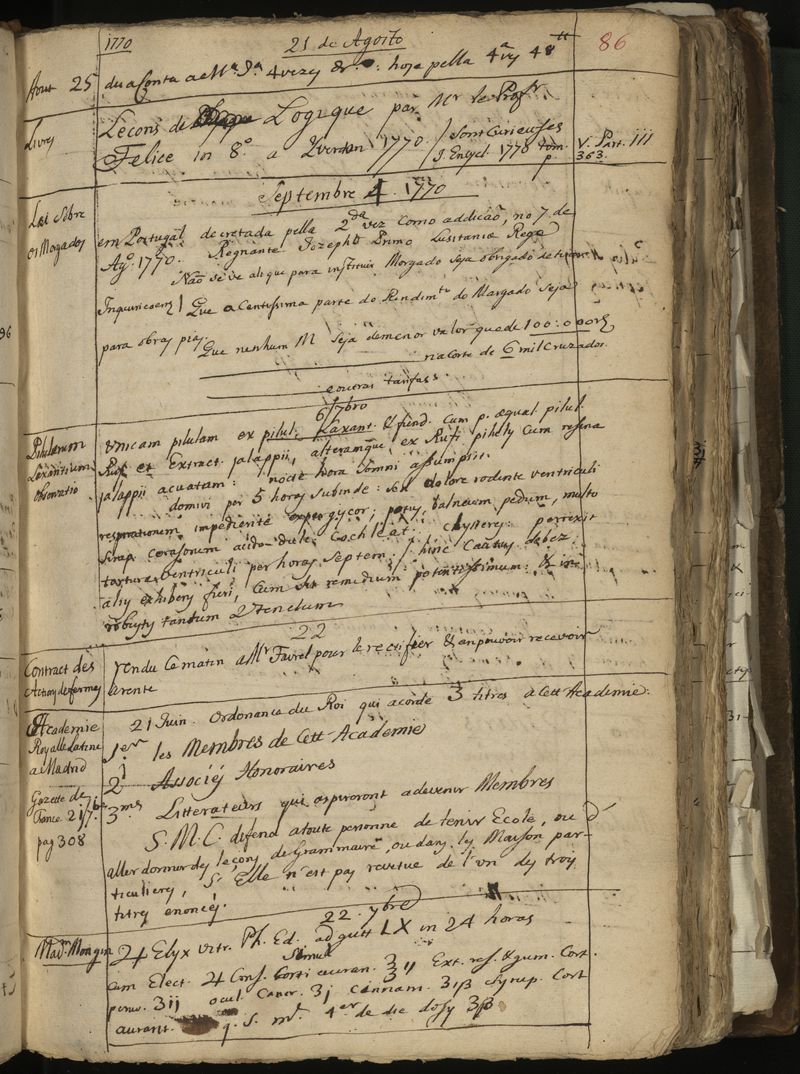 1770 21 de Agosto 86
Aout 25 duaConta aeMª. Sª 4vezy &c. hoje pella 4ª vy 48 tt
Livres Lecons de Logique par Mr le Profr.
Felice in 8º a Yverdon 1770 / Sont Curieuses
J. Encycl. 1770 tom. p. V. Part. III
363.
Septembre 4. 1770
Lei Sobre
os Mogados
em Portugal decretada pella 2da vez Como addicaõ, no 7. de
Agº. 1770. Regnante Jozepho Primo Lusitaniæ Rege
Naõ se ve alique para instituir Morgado seja obrigado
Inquiricoens / Que a Centissima parte do Rendimto do Margado seja
para obras pias.
Que nenhum M. Seja demenor valor quede 100:000rs
na Corte de 6 mil Cruzados.
e outras tarifas.
6 / 7bro
Pilularum
Laxantium
Observatio
Unicam pilulam ex pilul. Laxant. & fund. Cum p. æqual pilul.
Ruf. et Extract. jalappii, alteramque ex Rufi pihely Cum resina
jalappii acuatam: nocte hora somni assumpsit.
domivi per 5 horas Subinde: sed dolore rodente ventriculi
respirationem impediente expergycor; potus, balneum pedum, multo
Sirap. corasonum acido-dule; Cochleat. clysterez: porrexit
tortura Ventriculi per horas Septem. / hinc Cautus debez
aliis exhibens fieri, Cum sit remedium potentissimum: & in
robustys tantum Utendum
22
Contract des
Actions desfermes
rendu Ce matin a Mr. Favrel pour le rectifier & en pouvoir recevoir
larente
Academie
Royalle Latine
a Madrid
Gazette de
Fance. 21/7.bre
pag 308
21 Juin. Ordonance du Roi qui acorde 3 titres a Cett Academie:
1er. les Membres de Cett-Academie
2d Associés Honoraires
3mes Litterateurs qui aspireront adevenir Membres
S. M. C. defend a toute personne de tenir Ecole, ou d'
aller donner des leçons de Grammaire, ou dans les Maison par-
ticulieres, Si Elle n'est pas revetue de l'un des trois
titres enoncés.
22. 7bre
Madm. Mongin
♃ Elyx vitr. Ph. Ed. ad gutt LX in 24 horas
Simul
cum Elect. ♃ Cons. Corti auran. ʒij Ext. res. & gum. Cort.
peruv. ʒij ocul. Cancr. ʒj Cannam. ʒiß Syrup. Cort
aurant. q. S. mt. 4er de die dosy ʒß